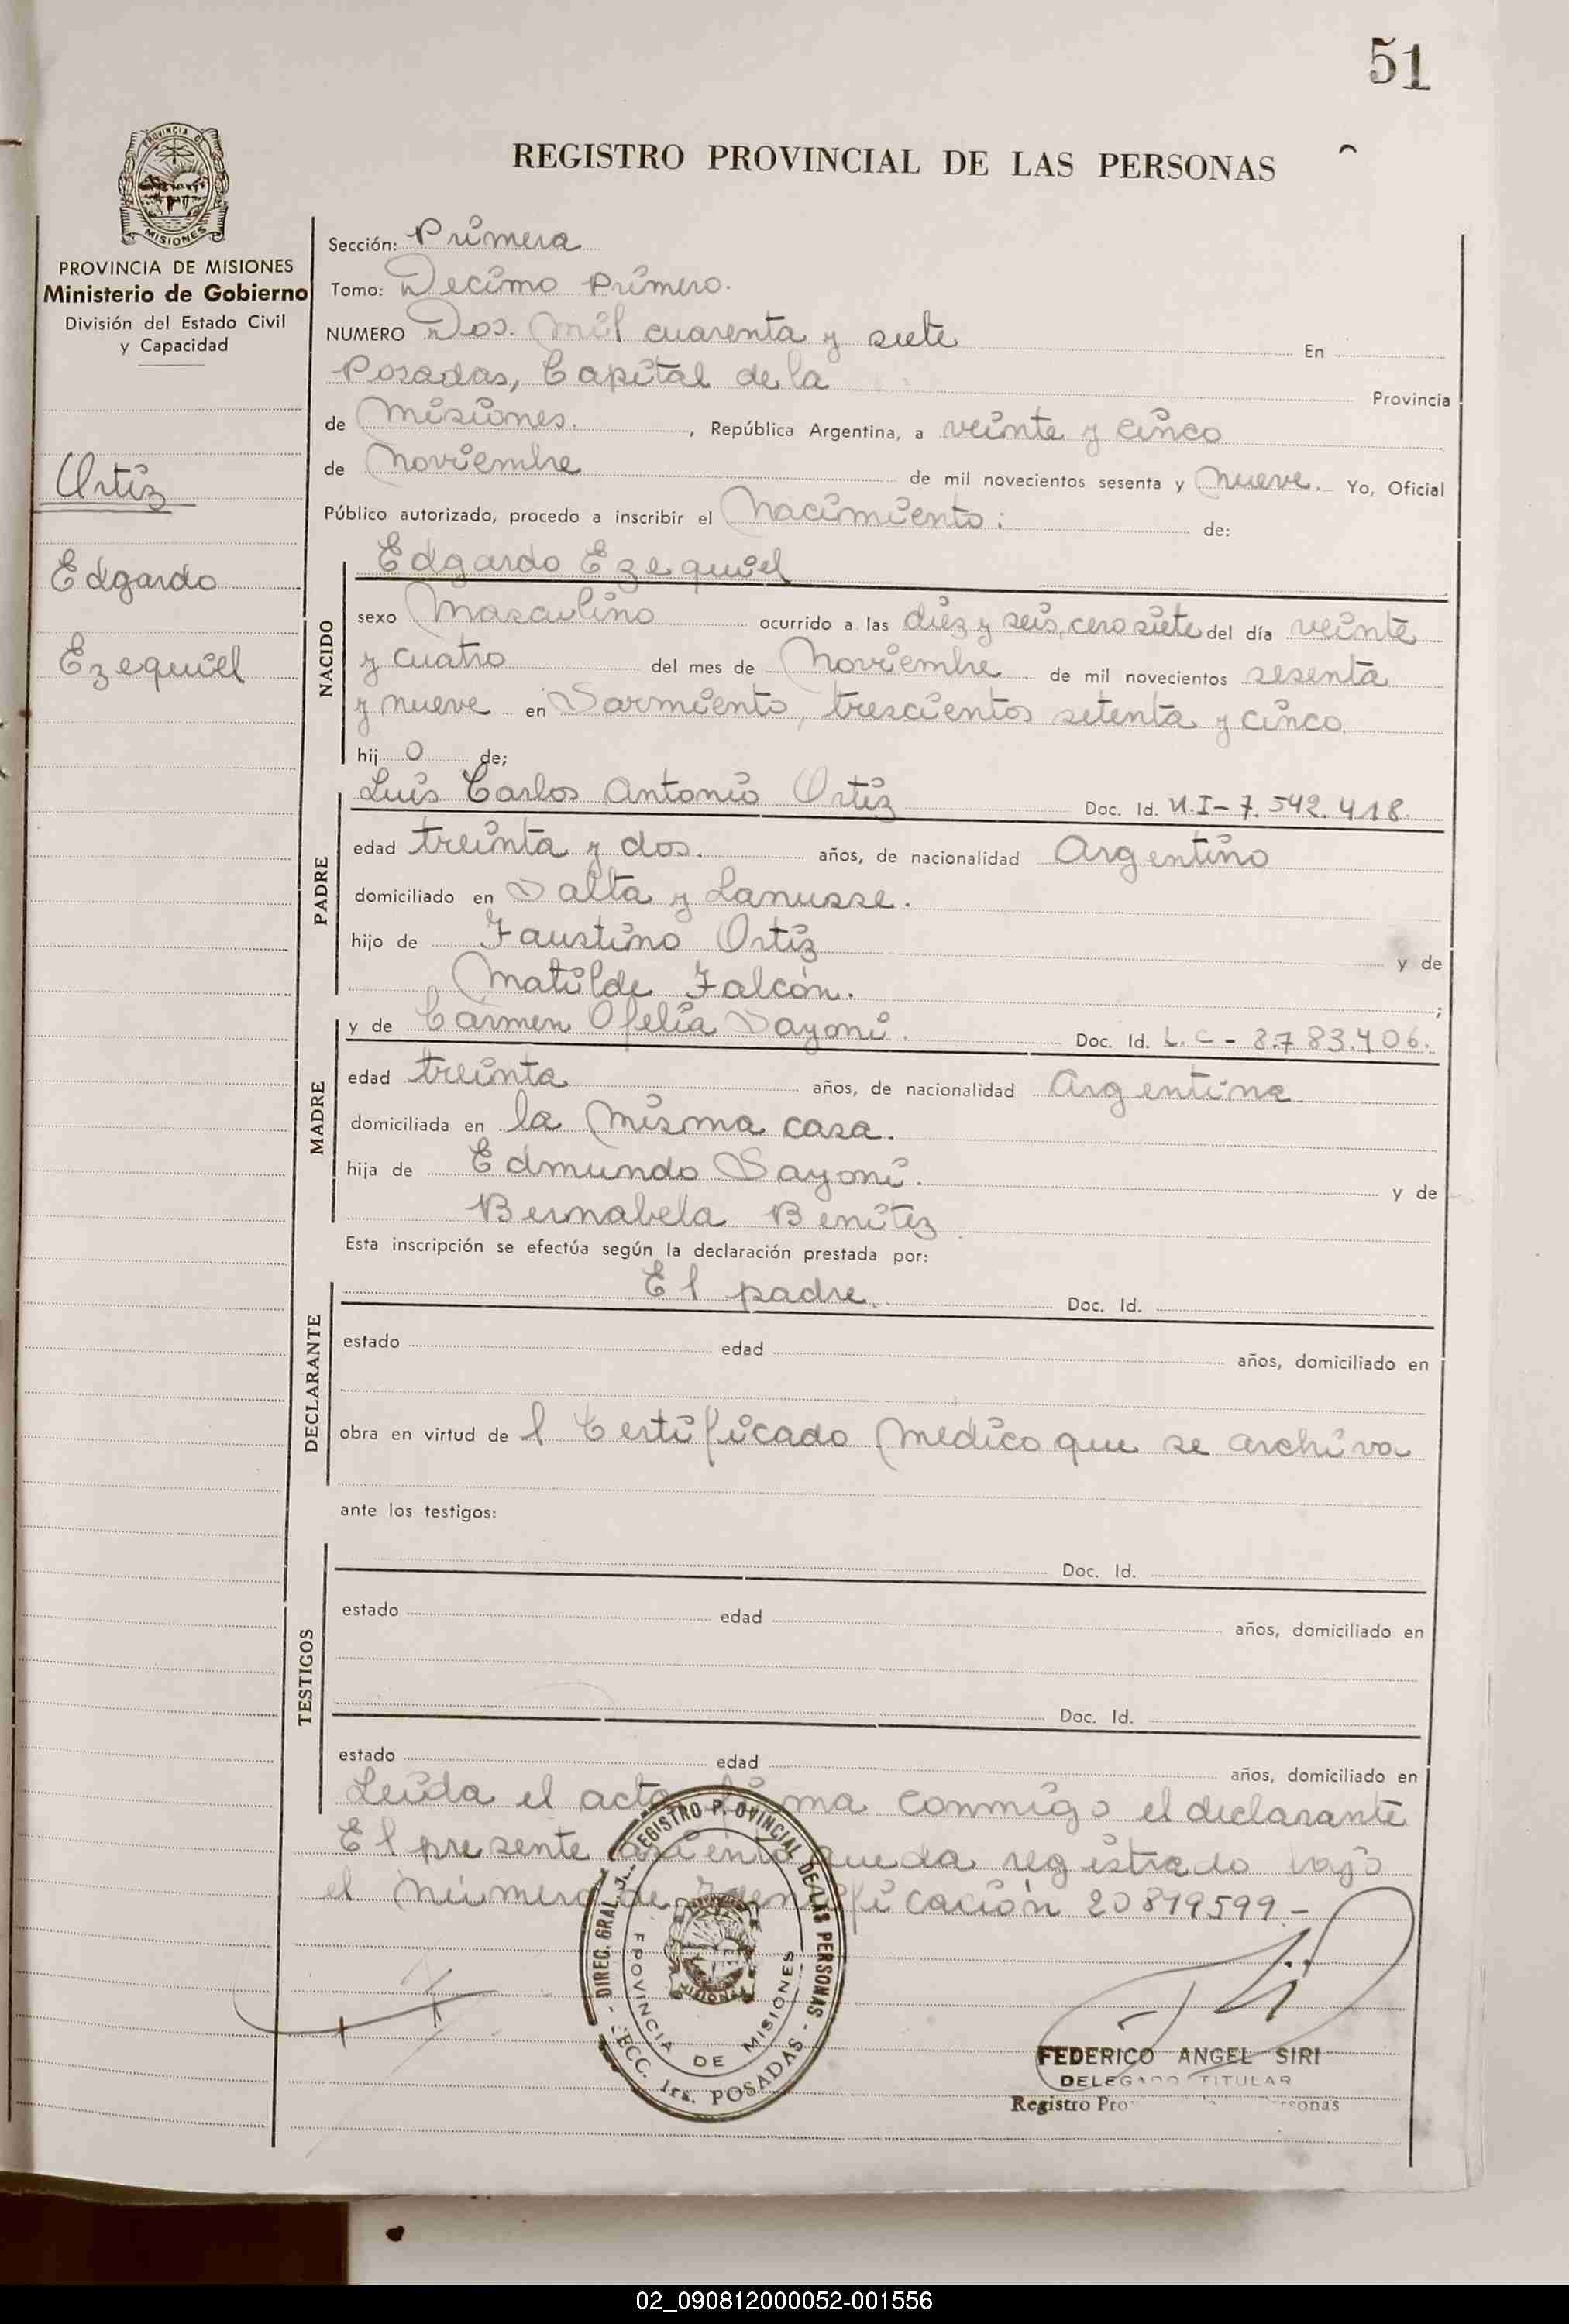 51
REGISTRO PROVINCIAL DE LAS PERSONAS
PROVINCIA DE MISIONES
Ministerio de Gobierno
División del Estado Civil
y Capacidad
Ortiz
Edgardo
Ezequiel
Sección: Primera
Tomo: Decimo Primero.
NUMERO Dos. mil cuarenta y siete En
Posadas, Capital de la Provincia
de Misiones. , República Argentina, a veinte y cinco
de Noviembre de mil novecientos sesenta y nueve. Yo, Oficial
Público autorizado, procedo a inscribir el Nacimiento: de:
NACIDO
Edgardo Ezequiel
sexo Masculino ocurrido a las diez y seis, cero siete del día veinte
y cuatro del mes de Noviembre de mil novecientos sesenta
y nueve en Sarmiento, trescientos setenta y cinco.
hij o de;
PADRE
Luis Carlos Antonio Ortiz Doc. Id. M.I-7.542.418.
edad treinta y dos. años, de nacionalidad Argentino
domiciliado en Salta y Lanusse.
hijo de Faustino Ortiz y de
Matilde Falcón. ;
MADRE
y de Carmen Ofelia Sayoni. Doc. Id. L.C-8.783.406.
edad treinta años, de nacionalidad Argentina
domiciliada en la misma casa.
hija de Edmundo Sayoni. y de
Bernabela Benitez.
Esta inscripción se efectúa según la declaración prestada por:
DECLARANTE
El padre. Doc. Id.
estado edad años, domiciliado en
obra en virtud de l Certificado Medico que se archiva
ante los testigos:
TESTIGOS
Doc. Id.
estado edad años, domiciliado en
Doc. Id.
estado edad años, domiciliado en
Leida el acta firma conmigo el declarante
El presente asiento queda registrado bajo
el número de Identificación 20819599.-
DIREC. GRAL. REGISTRO PROVINCIAL DE LAS PERSONAS - SECC. 1ra. POSADAS -
PROVINCIA DE MISIONES
FEDERICO ANGEL SIRI
DELEGADO TITULAR
Registro Pro sonas
02_090812000052-001556